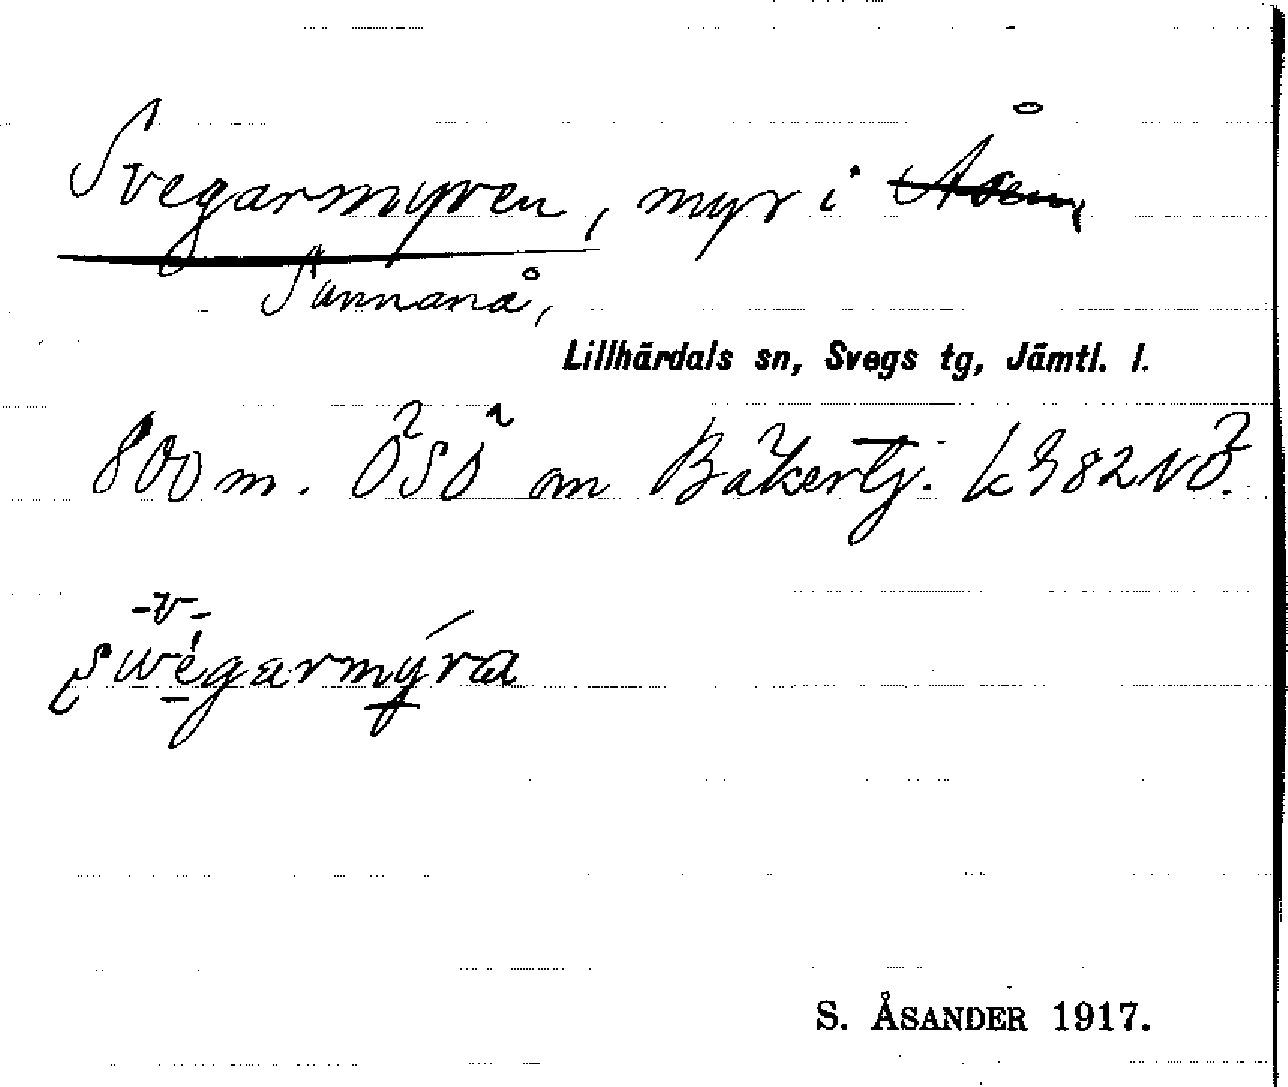 Svegarmyren, myr i Åsen,
Sunnanå,
Lillhärdals sn, Svegs tg, Jämtl. l.
800 m. ÖSÖ om Bäkertj. k 982 NÖ.
-v-
swégarmýra
S. ÅSANDER 1917.